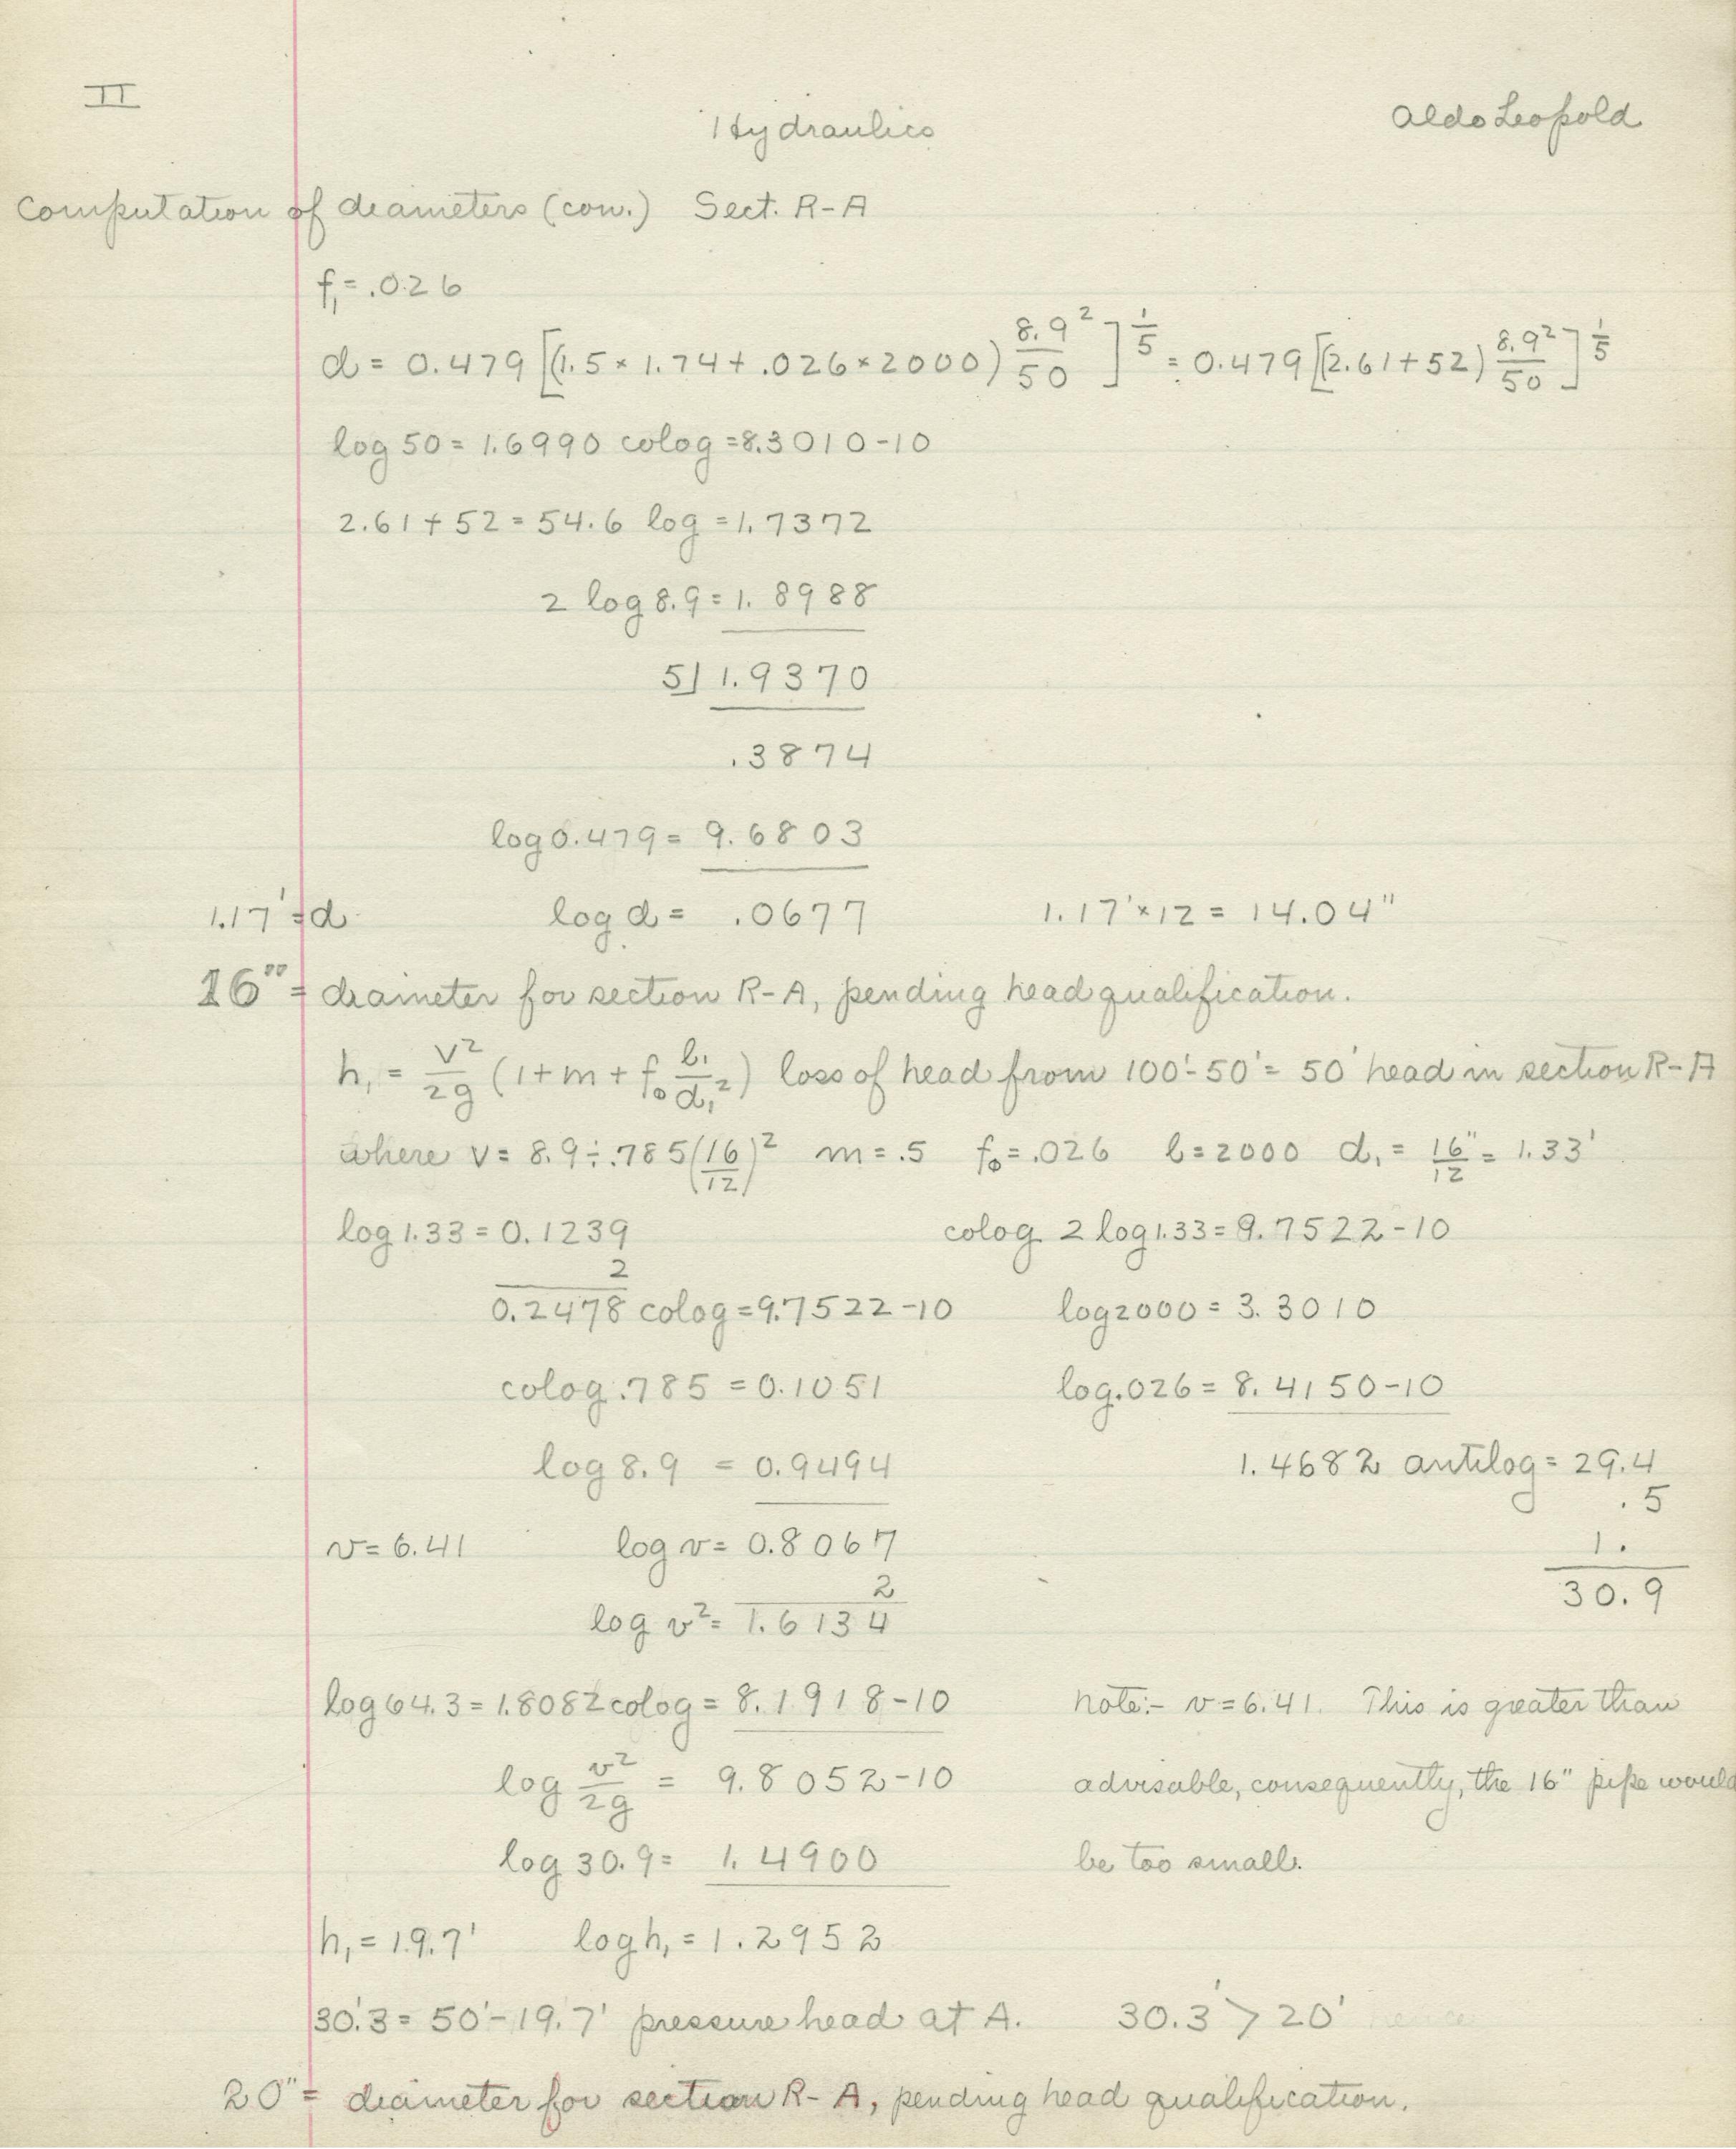 II
Hydraulics
Aldo Leopold
Computation of diameters (con.) Sect. R-A
f₁ = .026
d = 0.479 [(1.5 × 1.74 + .026 × 2000) 8.9²/50]^1/5 = 0.479 [(2.61 + 52) 8.9²/50]^1/5
log 50 = 1.6990 colog = 8.3010-10
2.61 + 52 = 54.6 log = 1.7372
2 log 8.9 = 1.8988
5) 1.9370
.3874
log 0.479 = 9.6803
1.17' = d log d = .0677 1.17' × 12 = 14.04"
16" = diameter for section R-A, pending head qualification.
h₁ = V²/2g (1 + m + f₀ l₁/d₁²) loss of head from 100' - 50' = 50' head in section R-A
where v = 8.9 ÷ .785 (16/12)² m = .5 f₀ = .026 l = 2000 d₁ = 16"/12 = 1.33'
log 1.33 = 0.1239 colog 2 log 1.33 = 9.7522-10
2
0.2478 colog = 9.7522-10 log 2000 = 3.3010
colog .785 = 0.1051 log .026 = 8.4150-10
log 8.9 = 0.9494 1.4682 antilog = 29.4
.5
v = 6.41 log v = 0.8067 1.
2 30.9
log v² = 1.6134
log 64.3 = 1.8082 colog = 8.1918-10 Note:- v = 6.41. This is greater than
log v²/2g = 9.8052-10 advisable, consequently, the 16" pipe would
log 30.9 = 1.4900 be too small.
h₁ = 19.7' log h₁ = 1.2952
30.'3 = 50' - 19.7' pressure head at A. 30.3' > 20' hence
20" = diameter for section R-A, pending head qualification.